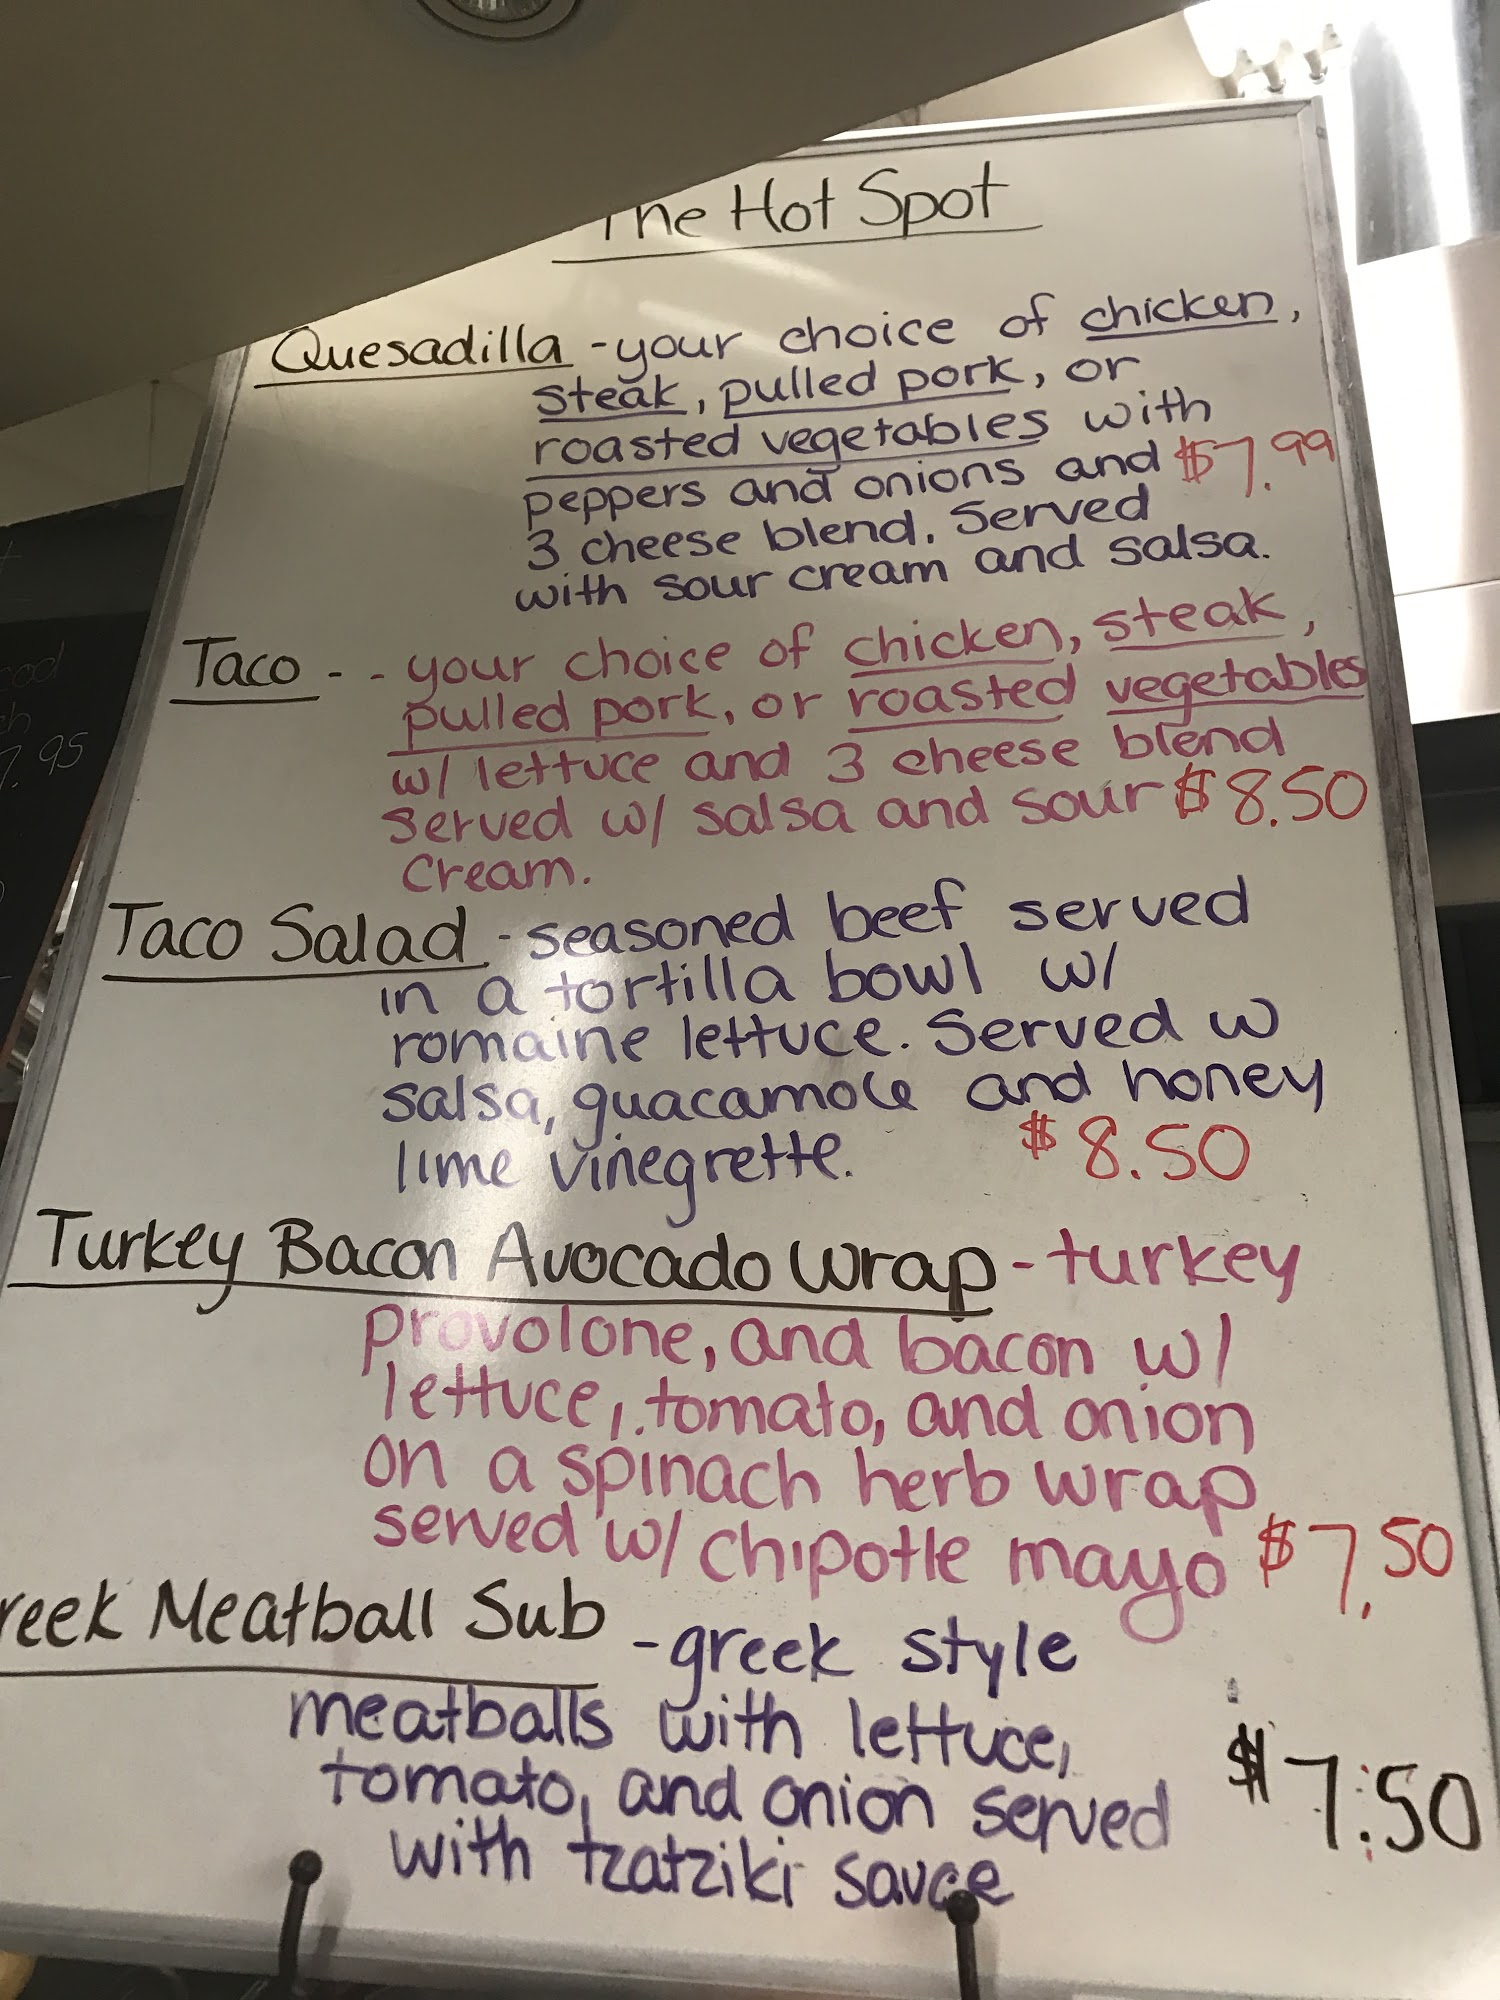 The Hot Spot
Quesadilla - your choice of chicken,
steak, pulled pork, or
roasted vegetables with
peppers and onions and $7.99
3 cheese blend. Served
with sour cream and salsa.
Taco - - your choice of chicken, steak,
pulled pork, or roasted vegetables
w/ lettuce and 3 cheese blend
served w/ salsa and sour $8.50
cream.
Taco Salad - seasoned beef served
in a tortilla bowl w/
romaine lettuce. Served w
salsa, guacamole and honey
lime vinegrette. $8.50
Turkey Bacon Avocado Wrap - turkey
provolone, and bacon w/
lettuce, tomato, and onion
on a spinach herb wrap
served w/ chipotle mayo $7.50
reek Meatball Sub - greek style
meatballs with lettuce,
tomato, and onion served $7.50
with tzatziki sauce
7.95